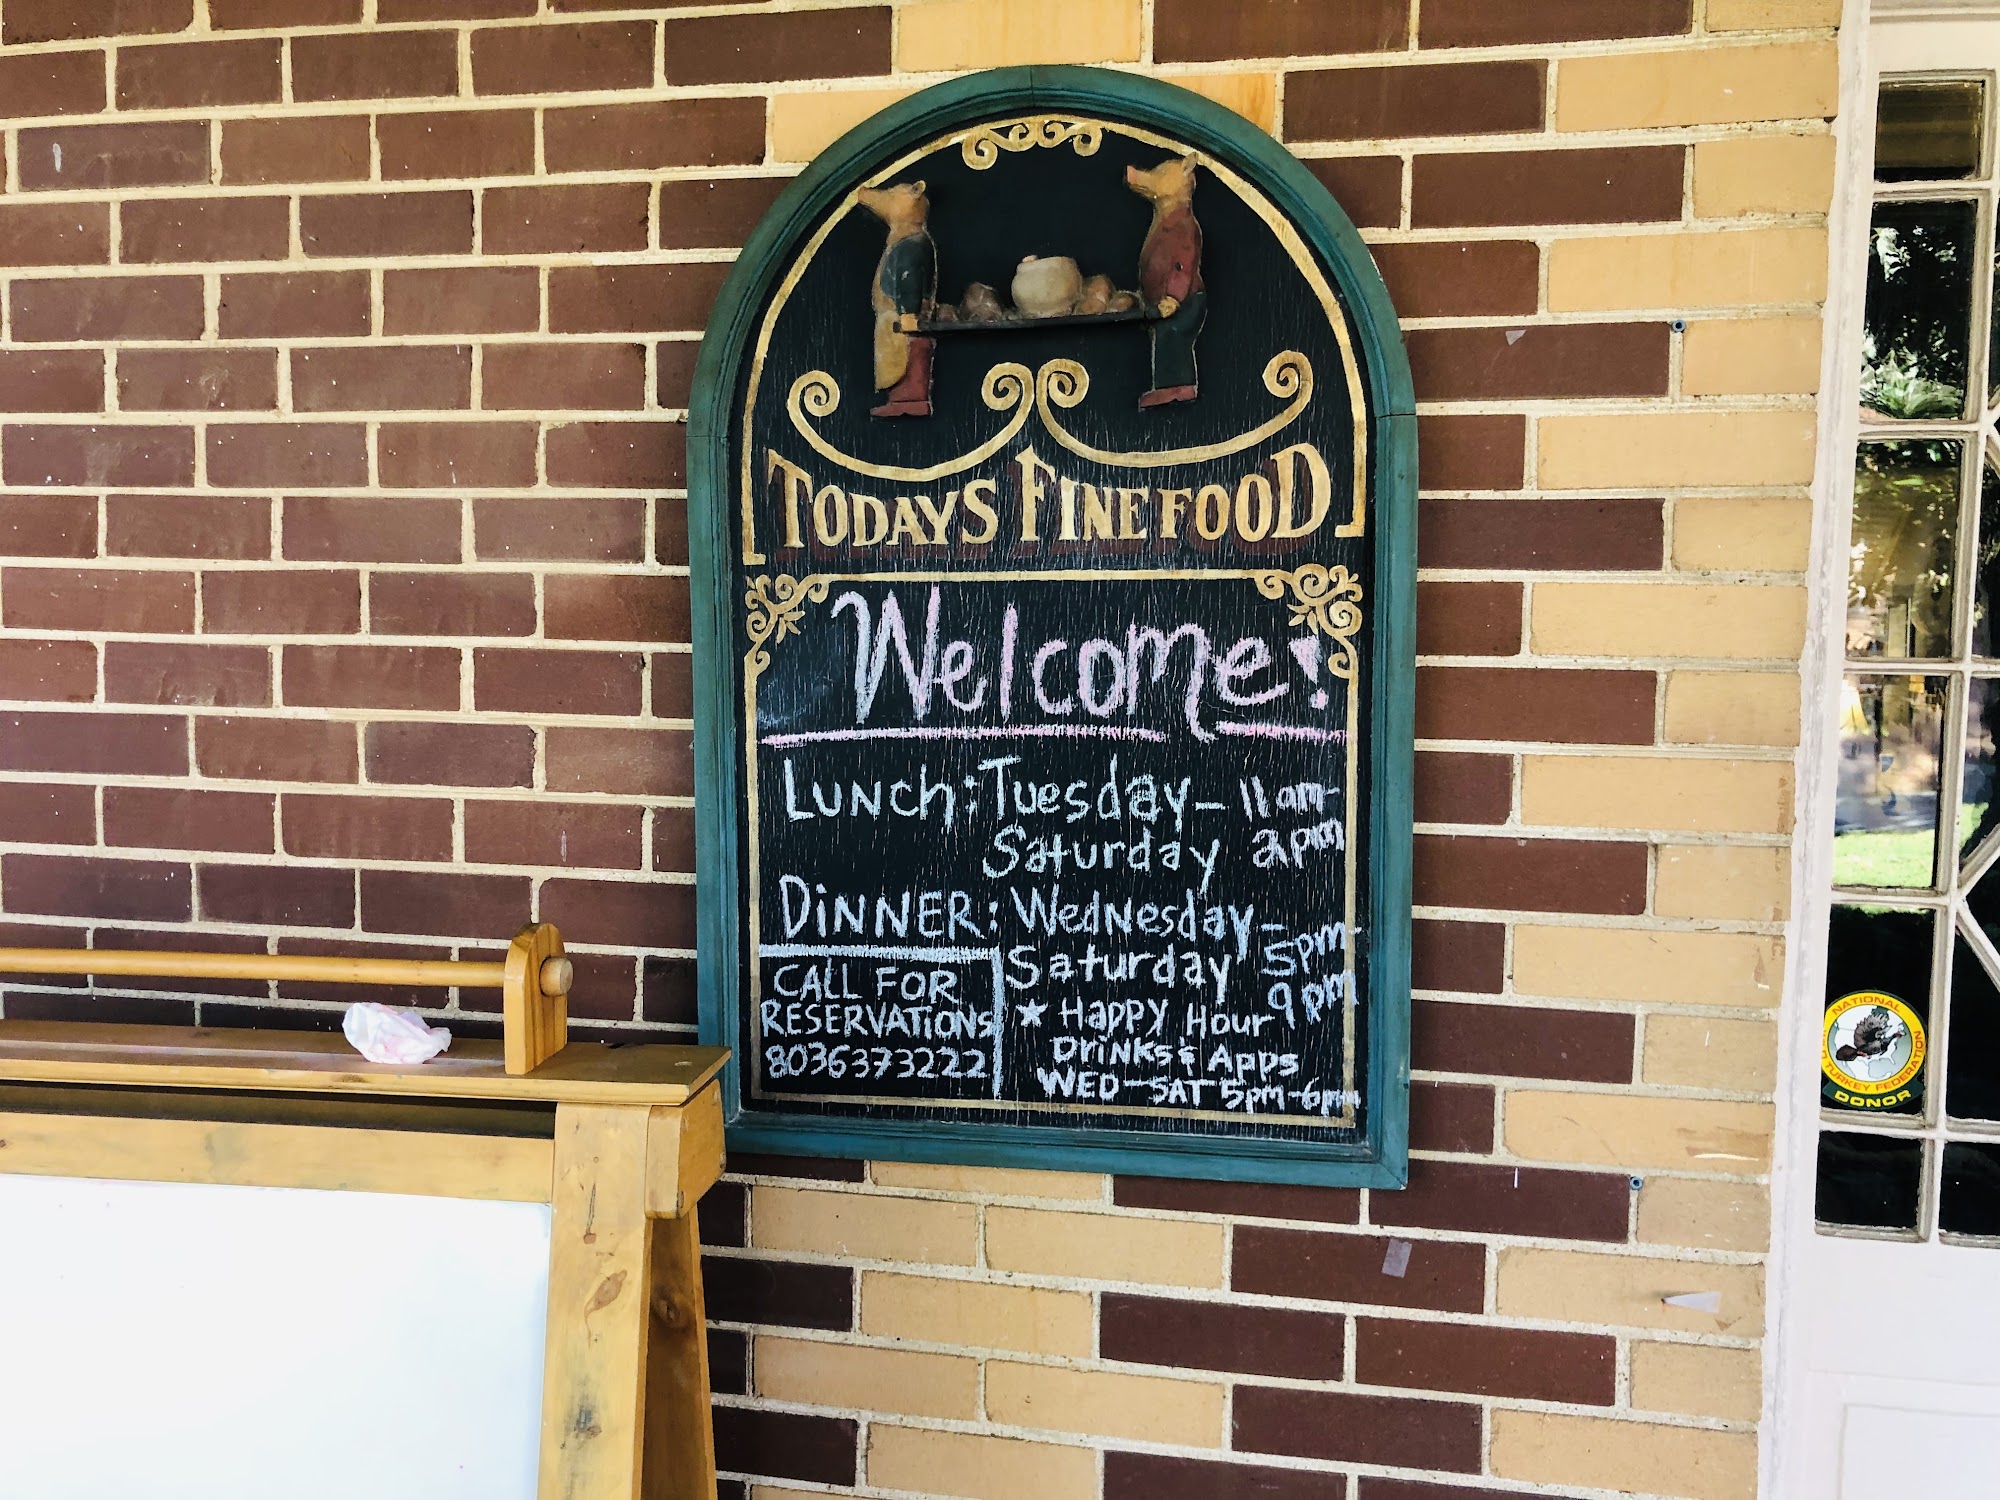 TODAYS FINE FOOD
Welcome!
LUNCh: Tuesday – 11am-
Saturday 2pm
DiNNER: WedNesday –
Saturday 5pm-
9pm
CALL FOR
RESERVATIONS
8036373222
★ Happy Hour
DriNKs & Apps
WED – SAT 5pm-6pm
NATIONAL
TURKEY FEDERATION
DONOR